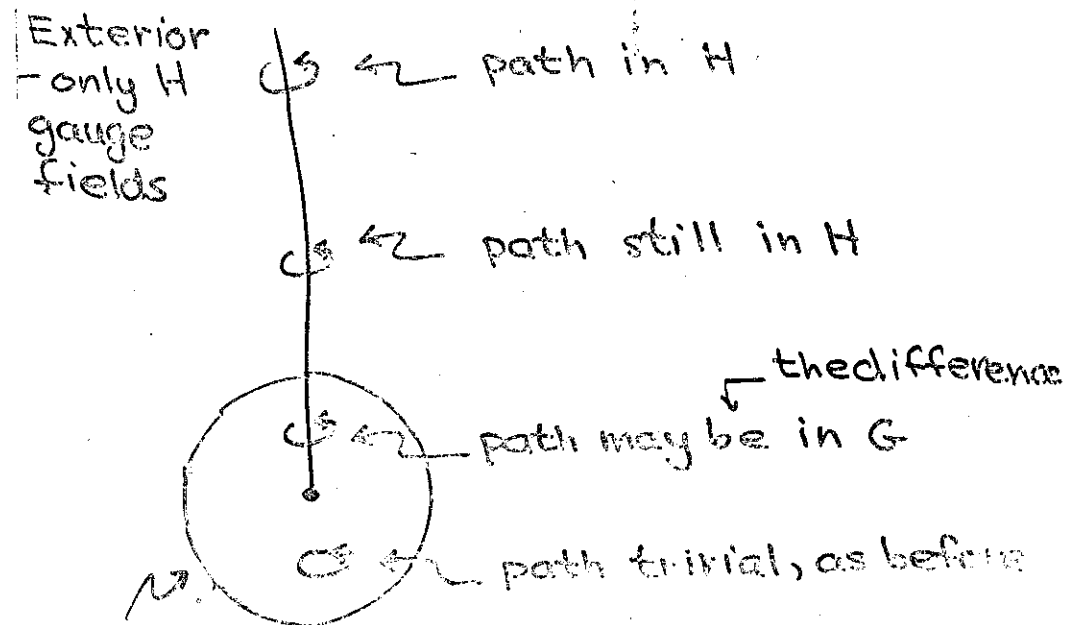 Exterior
- only H
gauge
fields
path in H
path still in H
the difference
path may be in G
path trivial, as before